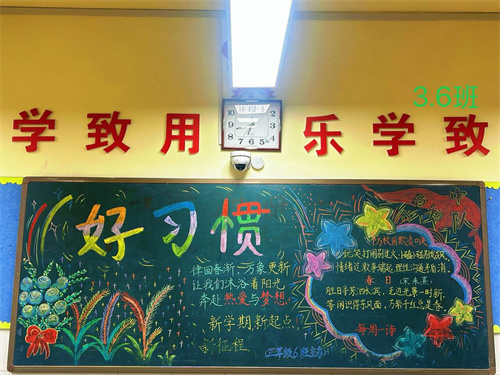 3.6班
学致用 乐学致
好习惯
律回春渐 万象更新
让我们沐浴着阳光
奔赴热爱与梦想
新学期,新起点
新征程
(三年级6班主办)
春日 (宋 朱熹)
胜日寻芳泗水滨,无边光景一时新。
等闲识得东风面,万紫千红总是春。
每周一诗